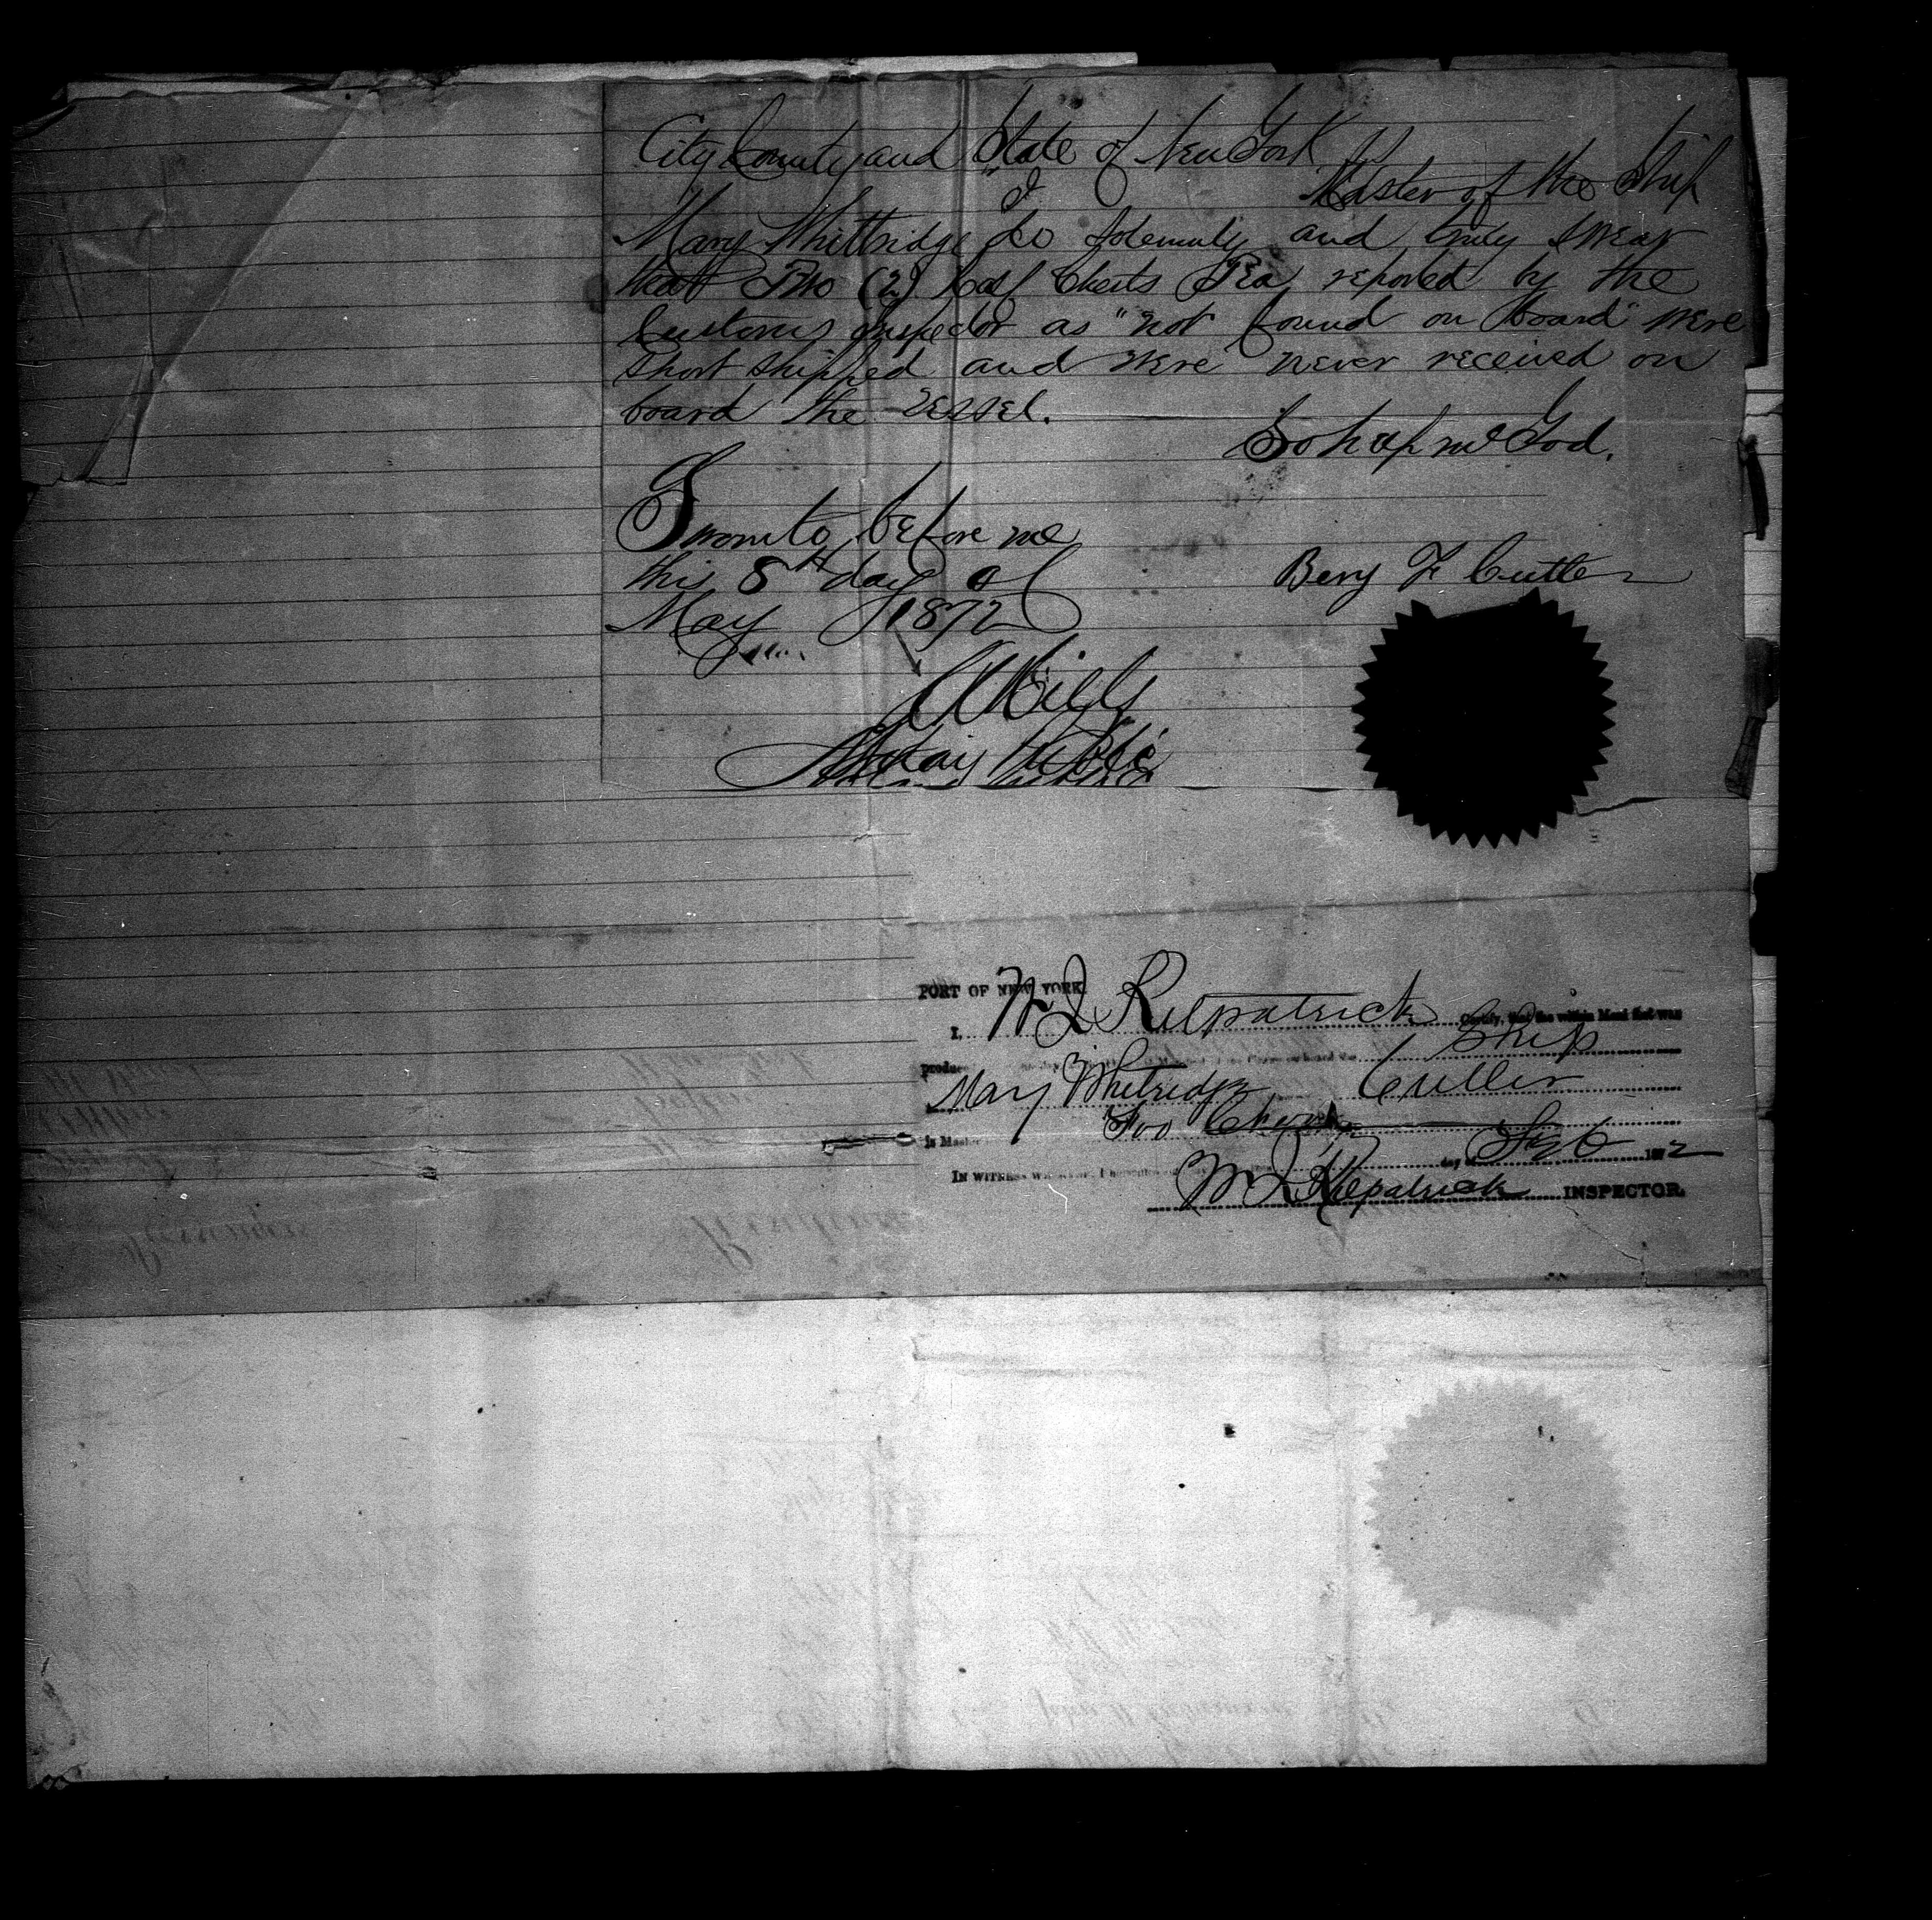 City County and State of New York
I Master of the Ship
Mary Whittridge do Solemnly and truly swear
that Two (2) half Chests Tea reported by the
Customs Inspector as "not found on board" were
short shipped and were never received on
board the vessel.
So help me God.
Sworn to before me
this 8th day of
May 1872
Benj F Cutler
Notary Public
PORT OF NEW YORK.
I, W J Kilpatrick Certify, that the within Manifest was
produc Ship
Mary Whitridge Cutler
is Master Foo Chow
IN WITNESS WHEREOF, I day of 1872
W J Kilpatrick INSPECTOR.